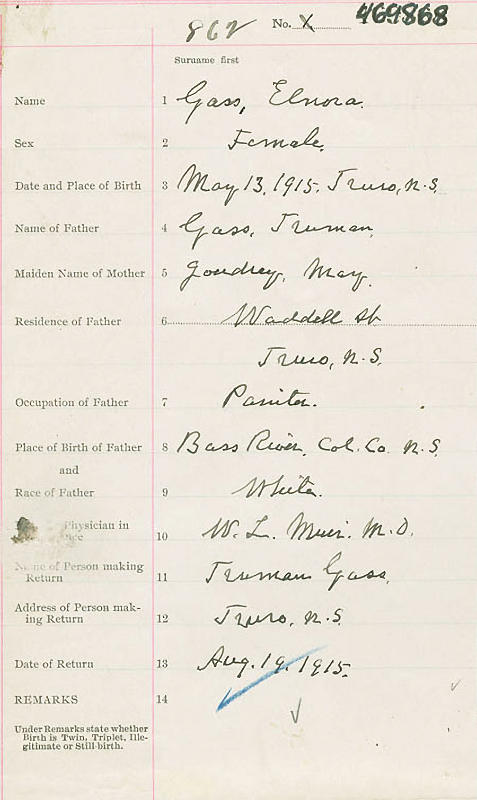 862 No. X 469868
Surname first
Name 1 Gass, Elnora.
Sex 2 Female.
Date and Place of Birth 3 May 13, 1915. Truro, N.S.
Name of Father 4 Gass, Truman.
Maiden Name of Mother 5 Goudrey, May.
Residence of Father 6 Waddell St
Truro, N.S.
Occupation of Father 7 Painter.
Place of Birth of Father 8 Bass River, Col. Co. N.S.
and
Race of Father 9 White.
Physician in 10 W. L. Muir. M.D.
Name of Person making
Return 11 Truman Gass.
Address of Person mak-
ing Return 12 Truro, N.S.
Date of Return 13 Aug. 19, 1915.
REMARKS 14
Under Remarks state whether
Birth is Twin, Triplet, Ille-
gitimate or Still-birth.